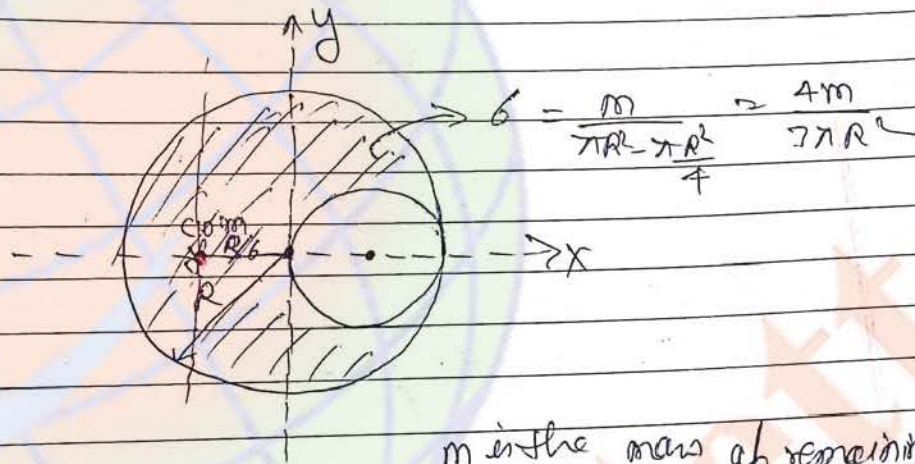 y
σ = m / (πR² - πR²/4) = 4m / 3πR²
com
R/6
x
R
m is the mass of remaining